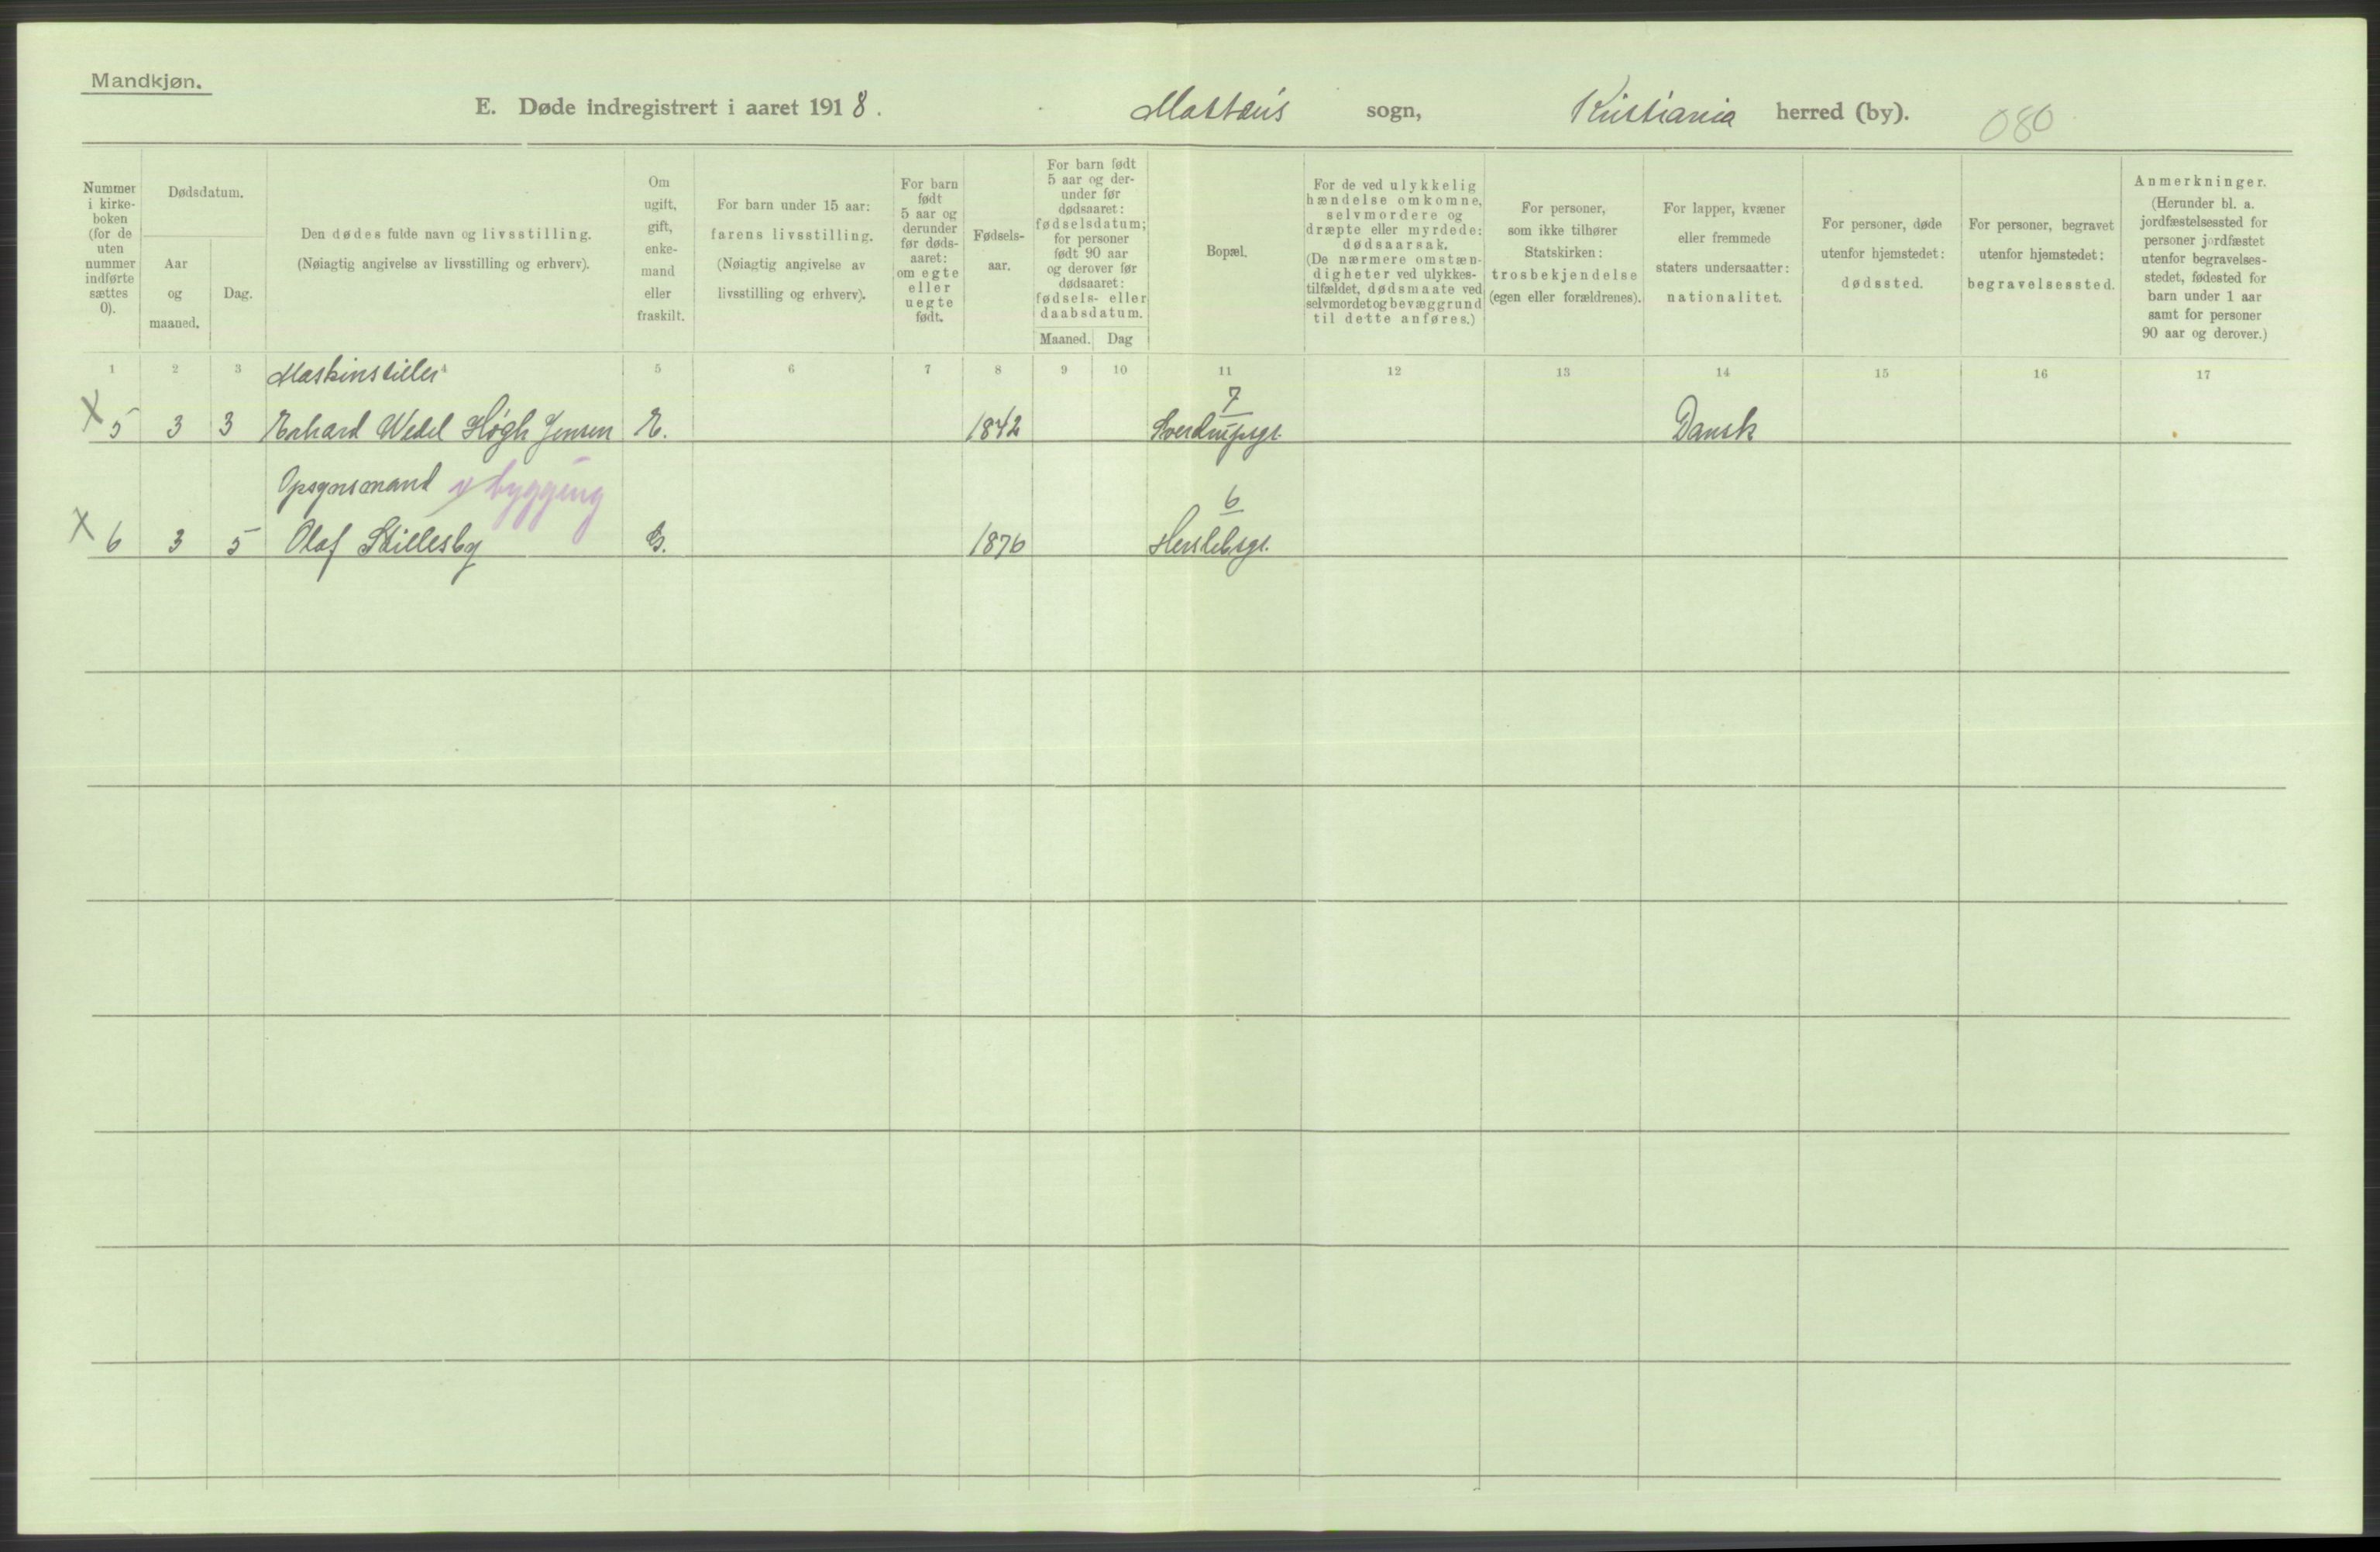 Mandkjøn.
E. Døde indregistrert i aaret 1918. Mattæus sogn, Kristiania herred (by). 080
Nummer i kirke-boken (for de uten nummer indførte sættes 0).
Dødsdatum.
Aar og maaned.
Dag.
Den dødes fulde navn og livsstilling.
(Nøiagtig angivelse av livsstilling og erhverv).
Om ugift, gift, enke-mand eller fraskilt.
For barn under 15 aar:
farens livsstilling.
(Nøiagtig angivelse av
livsstilling og erhverv).
For barn født 5 aar og derunder før døds-aaret: om egte eller uegte født.
Fødsels-aar.
For barn født 5 aar og der-under før dødsaaret: fødselsdatum; for personer født 90 aar og derover før dødsaaret: fødsels- eller daabsdatum.
Maaned. Dag
Bopæl.
For de ved ulykkelig hændelse omkomne, selvmordere og dræpte eller myrdede: dødsaarsak.
(De nærmere omstæn-digheter ved ulykkes-tilfældet, dødsmaate ved selvmordet og bevæggrund til dette anføres.)
For personer, som ikke tilhører Statskirken: trosbekjendelse (egen eller forældrenes).
For lapper, kvæner eller fremmede staters undersaatter: nationalitet.
For personer, døde utenfor hjemstedet: dødssted.
For personer, begravet utenfor hjemstedet: begravelsessted.
Anmerkninger.
(Herunder bl. a. jordfæstelsessted for personer jordfæstet utenfor begravelses-stedet, fødested for barn under 1 aar samt for personer 90 aar og derover.)
1 2 3 5 6 7 8 9 10 11 12 13 14 15 16 17
Maskinstiller
7
X 5 3 3 Erhard Wedel Høgh Jensen E. 1842 Sverdrupsgt. Dansk
Opsynsmand v bygging
6
X 6 3 5 Olaf Skillesby G. 1876 Herslebsgt.